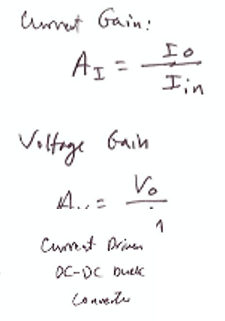 Current Gain:
A_I = Io / Iin
Voltage Gain
A.. = Vo / 1
Current Driven
DC-DC buck
Converter